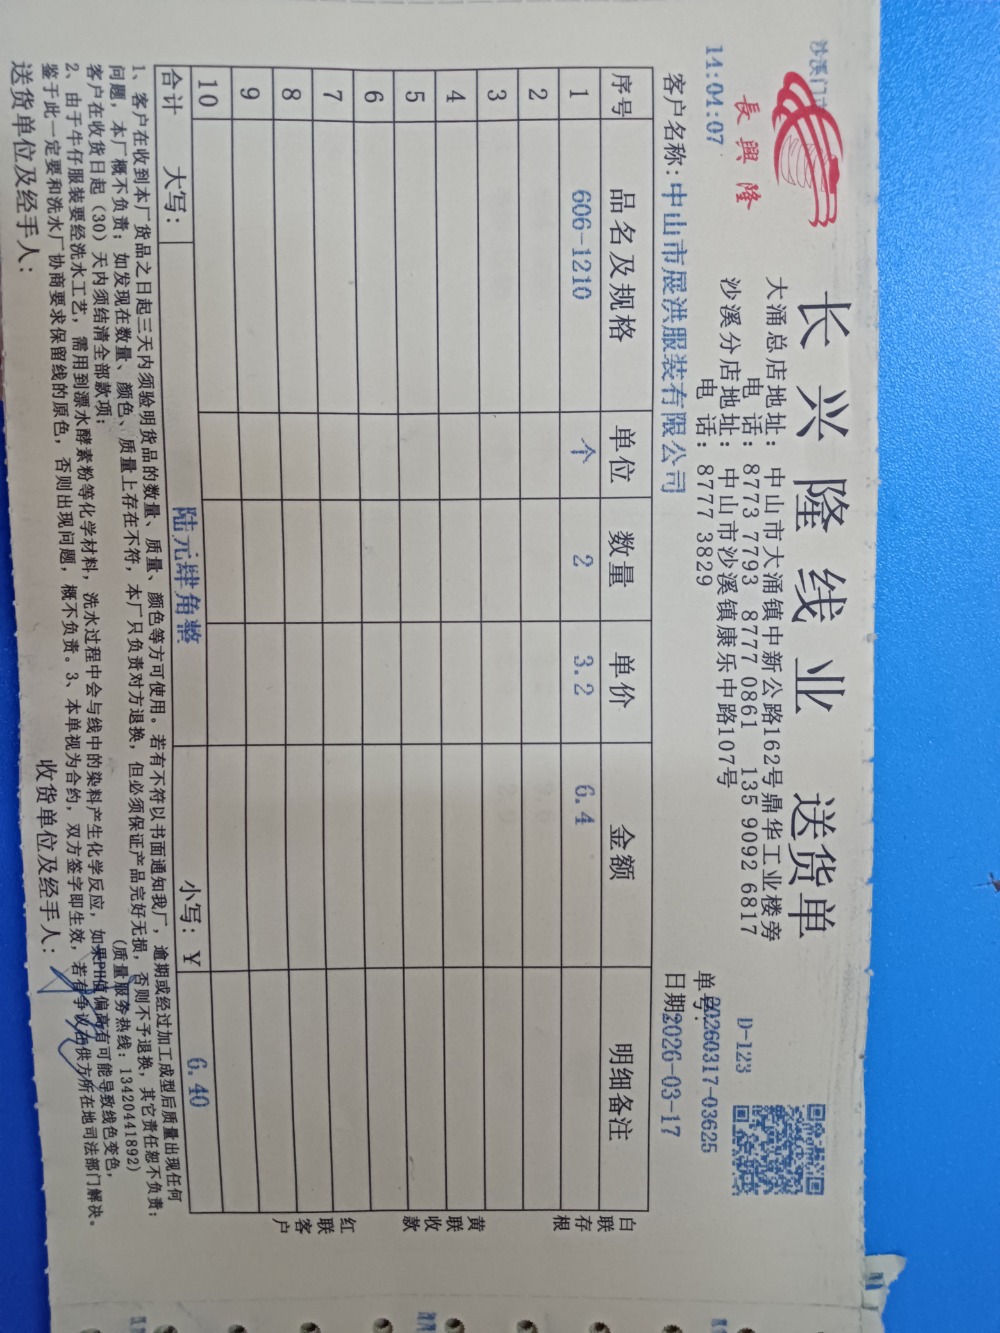 沙溪门市
長興隆
长兴隆线业 送货单
大涌总店地址: 中山市大涌镇中新公路162号鼎华工业楼旁
电 话: 8773 7793 8777 0861 135 9092 6817
沙溪分店地址: 中山市沙溪镇康乐中路107号
电 话: 8777 3829
14:04:07
D-123
单号: 20260317-03625
客户名称: 中山市展洪服装有限公司
日期 2026-03-17
序号 品名及规格 单位 数量 单价 金额 明细备注
1 606-1210 个 2 3.2 6.4
2
3
4
5
6
7
8
9
10
合计 大写: 陆元肆角整 小写: ¥ 6.40
白联存根
黄联收款
红联客户
1、客户在收到本厂货品之日起三天内须验明货品的数量、质量、颜色等方可使用。若有不符以书面通知我厂,逾期或经过加工成型后质量出现任何
问题,本厂概不负责;如发现在数量、颜色、质量上存在不符,本厂只负责对方退换,但必须保证产品完好无损,否则不予退换,其它责任恕不负责;
客户在收货日起(30)天内须结清全部款项; (质量服务热线:13420441892)
2、由于牛仔服装要经洗水工艺,需用到漂水酵素粉等化学材料,洗水过程中会与线中的染料产生化学反应,如果PH值偏高有可能导致线色变色,
鉴于此一定要和洗水厂协商要求保留线的原色,否则出现问题,概不负责。3、本单视为合约,双方签字即生效,若有争议在供方所在地司法部门解决。
送货单位及经手人: 收货单位及经手人: